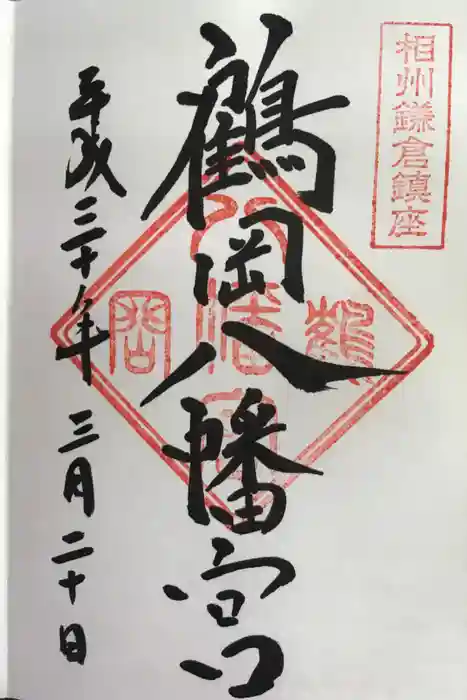 相州鎌倉鎮座
鶴岡八幡宮
鶴岡
八幡宮
平成三十年三月二十日